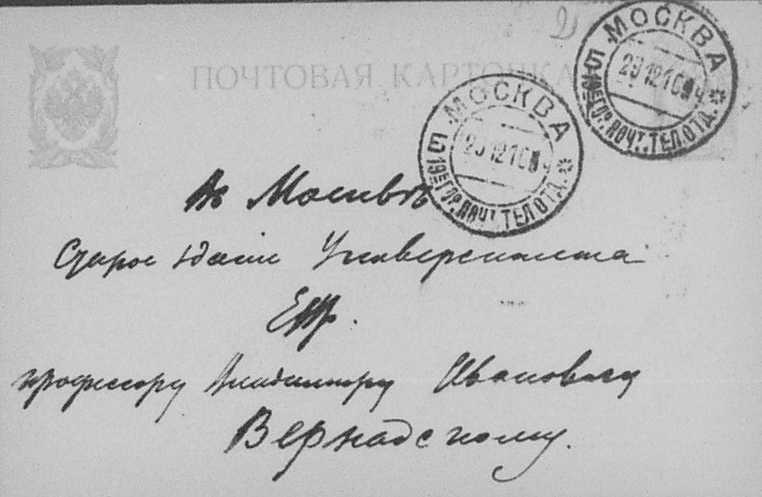 ПОЧТОВАЯ КАРТОЧКА
МОСКВА
29 12 10
5 19ЕГОР. ПОЧТ. ТЕЛ. ОТД.
МОСКВА
29 12 10
5 19ЕГОР. ПОЧТ. ТЕЛ. ОТД.
Въ Москвѣ
Старое здание Университета
Его
профессору Владимиру Ивановичу
Вернадскому.